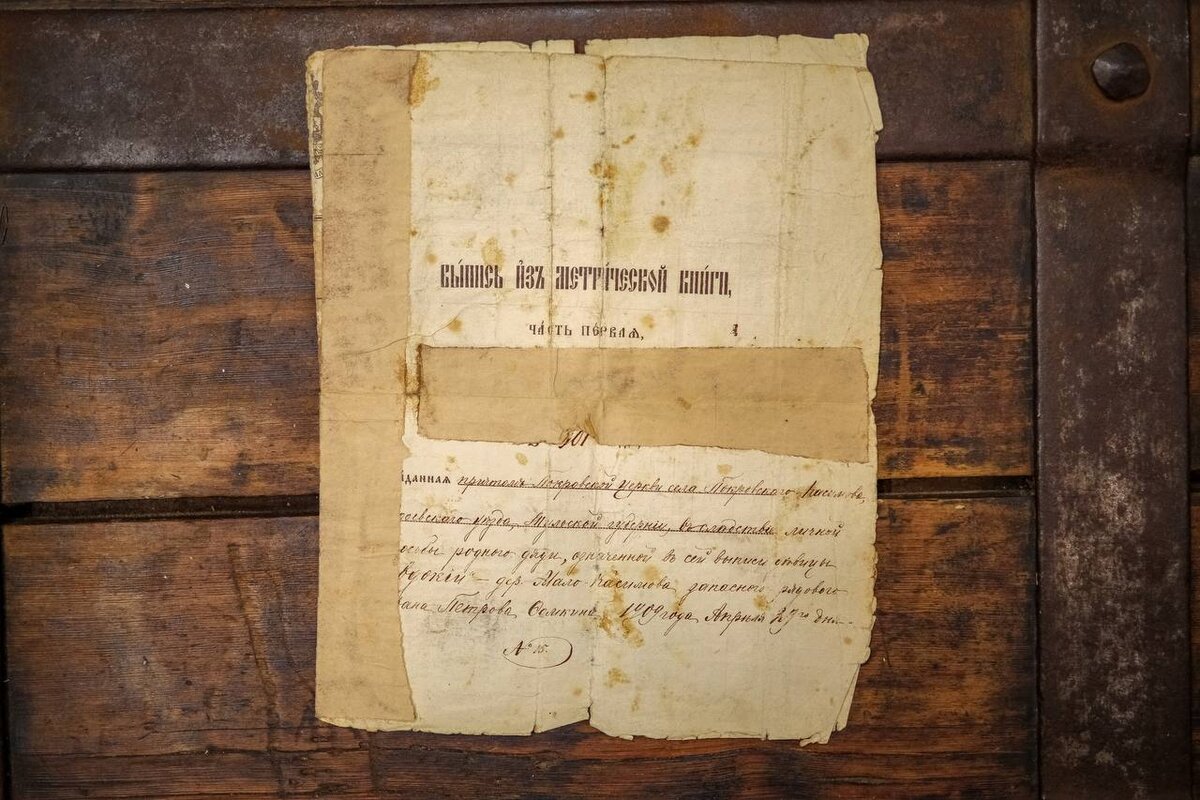 ВЫ́ПИСЬ И҆ЗЪ МЕТРИ́ЧЕСКОЙ КНИ́ГИ,
ЧА́СТЬ ПЕ́РВАѦ,
901
данная причтомъ Покровской церкви села Покровскаго Касимова,
уезда, Тульской губернии, вследствии личной
родного дяди, означенной в сей выписи девицы
дер. Мало-Касимова запасного рядового
Петрова Семкина 1909 года Апреля 27го дня.
№ 15.